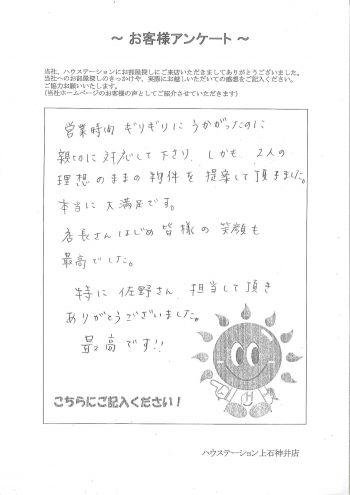 ～ お客様アンケート ～
当社、ハウステーションにお部屋探しにご来店いただきましてありがとうございました。
当社へのお部屋探しのきっかけや、実際にお越しいただいての感想をご記入ください。
ご協力お願いいたします。
(当社ホームページのお客様の声としてご紹介させていただきます)
営業時間 ぎりぎりに うかがったのに
親切に 対応して下さり、しかも、2人の
理想のままの物件を 提案して頂きました。
本当に 大満足です。
店長さんはじめ 皆様の 笑顔も
最高でした。
特に 佐野さん、担当して頂き
ありがとうございました。
最高です!!
こちらにご記入ください!
ハウステーション上石神井店